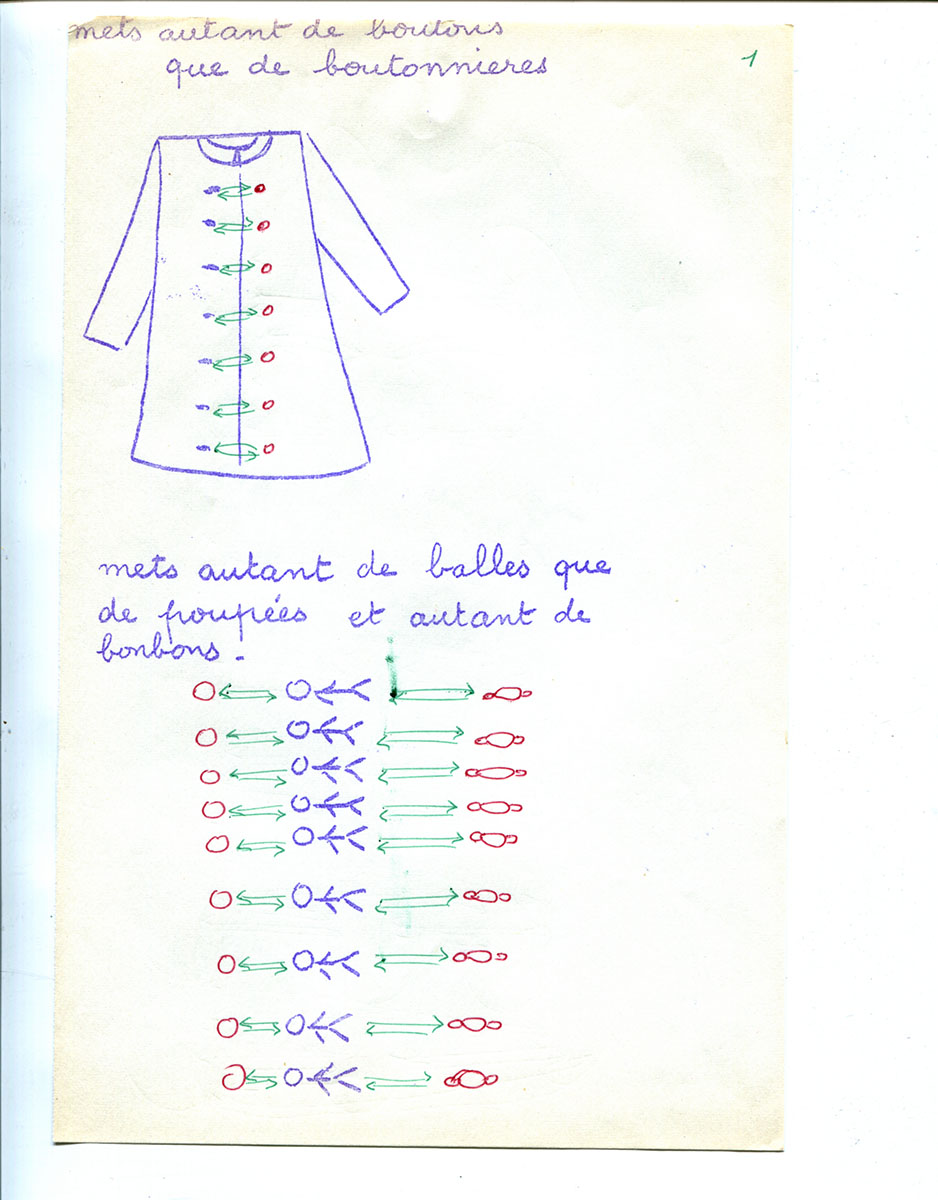 mets autant de boutons
que de boutonnieres
1
mets autant de balles que
de poupées et autant de
bonbons.